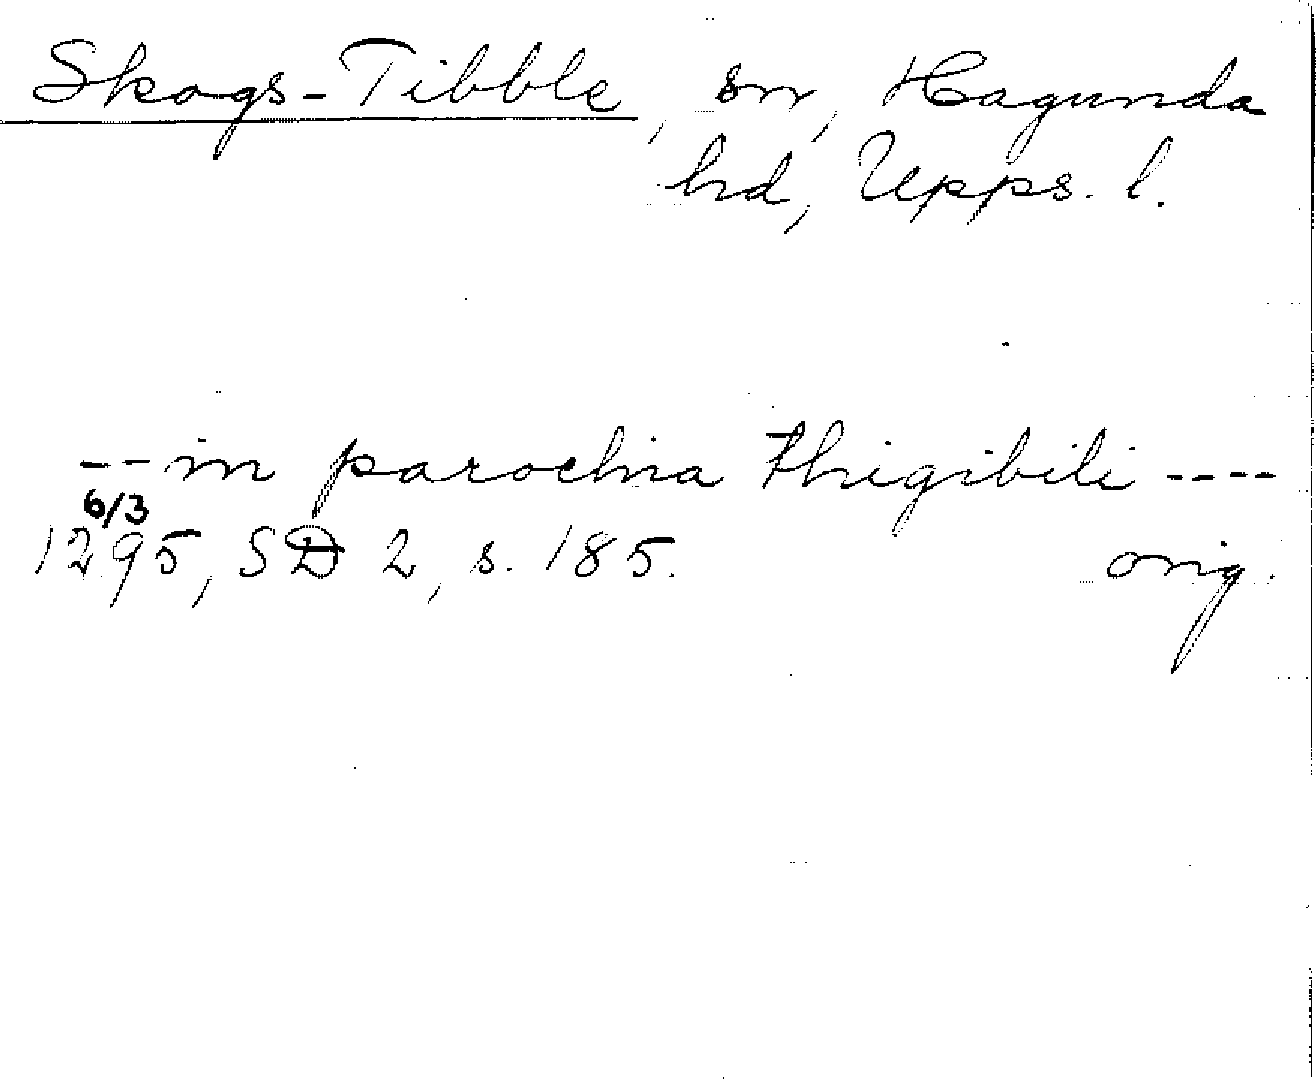 Skogs-Tibble, sn, Hagunda
hd, Upps. l.
-- in parochia Thigibili ----
6/3
1295, SD 2, s. 185. orig.